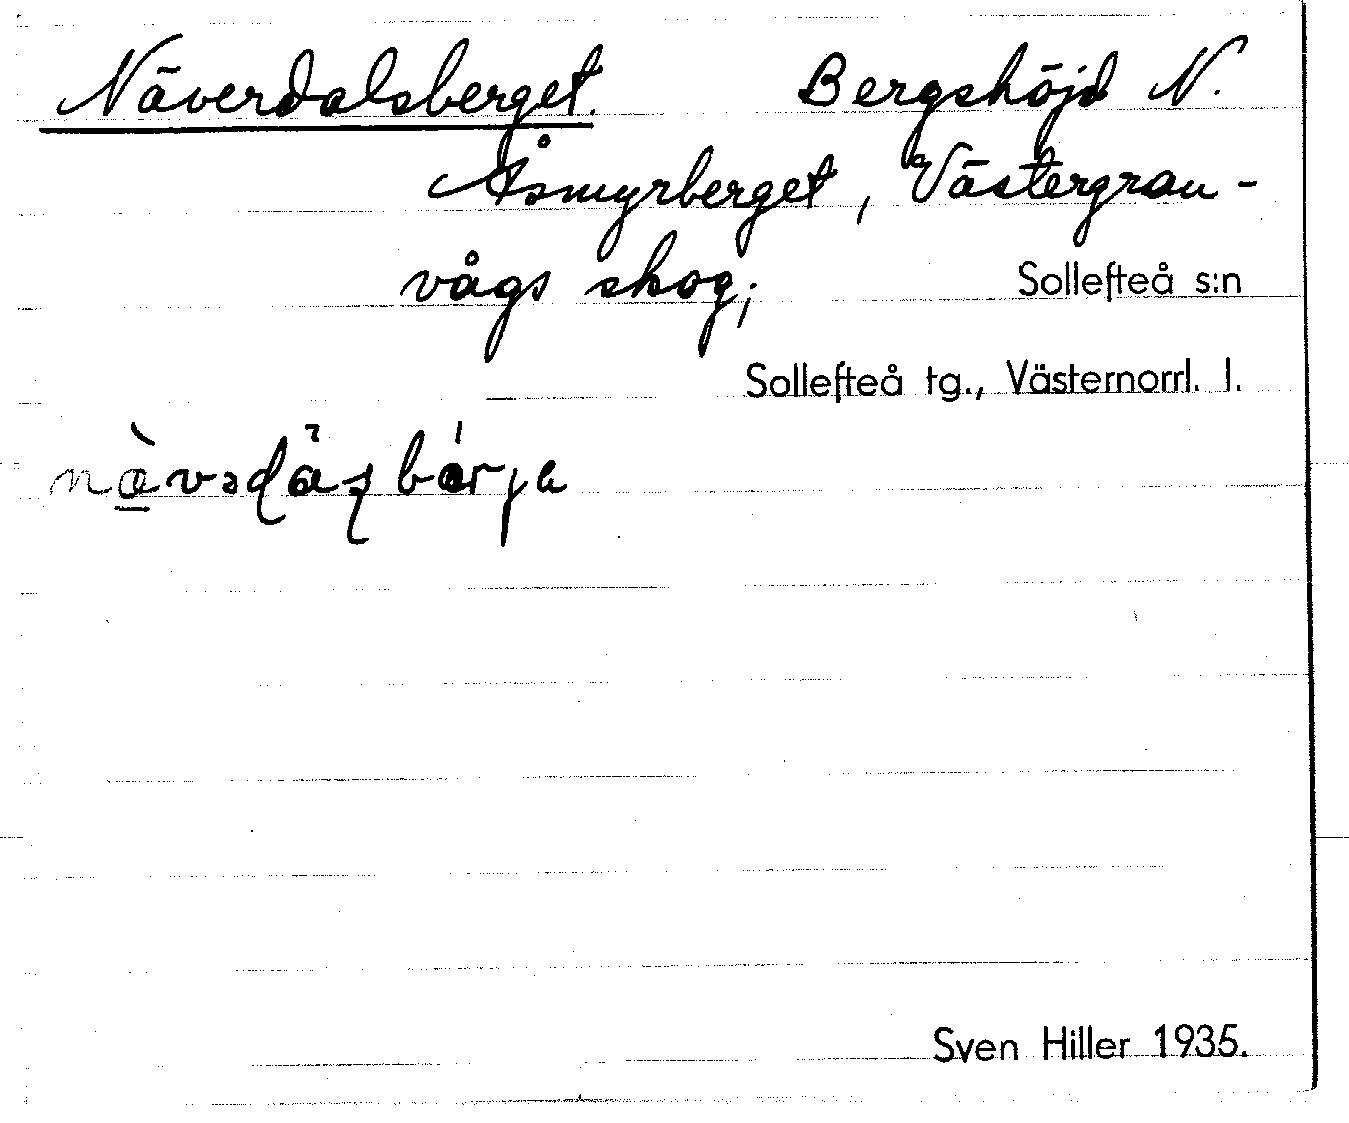 Näverdalsberget. Bergshöjd N.
Åsmyrberget, Västergran-
vågs skog; Sollefteå s:n
Sollefteå tg., Västernorrl. l.
Sven Hiller 1935.